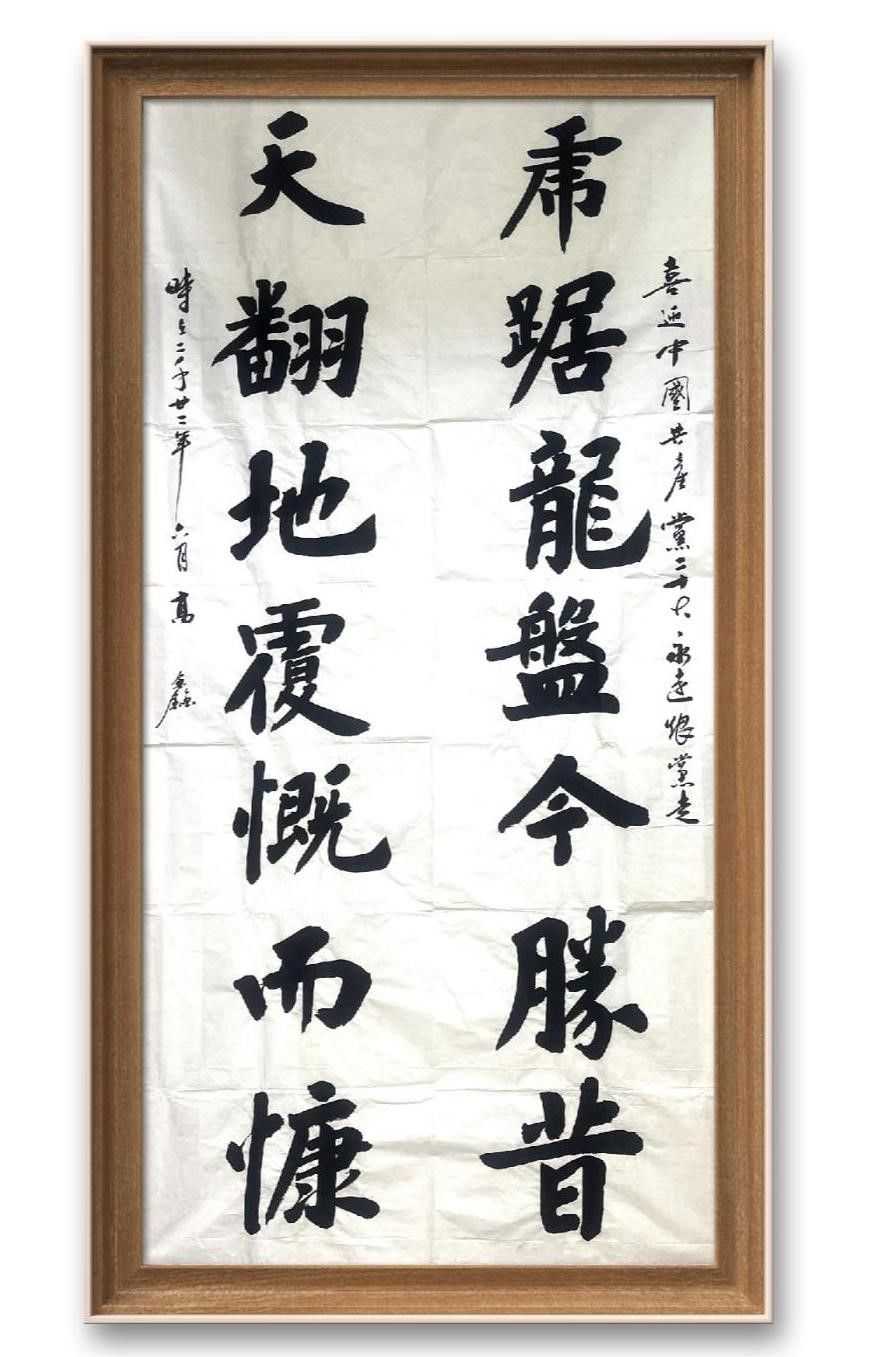 喜迎中國共產黨二十大永遠跟黨走
虎踞龍盤今勝昔
天翻地覆慨而慷
時在二千廿二年六月高鑫